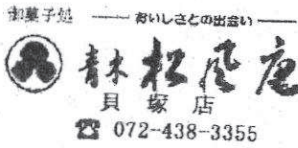 御菓子処 おいしさとの出会い
青木松風庵
貝塚店
☎ 072-438-3355